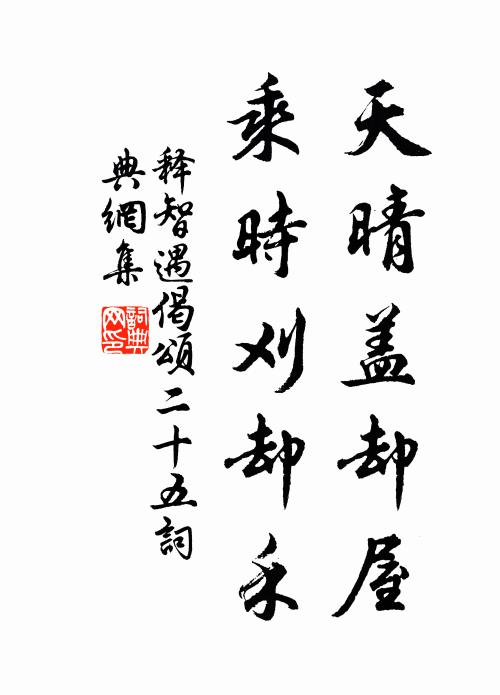 天晴盖却屋
乘時刈却禾
释智遇偈頌二十五詞
典網集
詞典网印